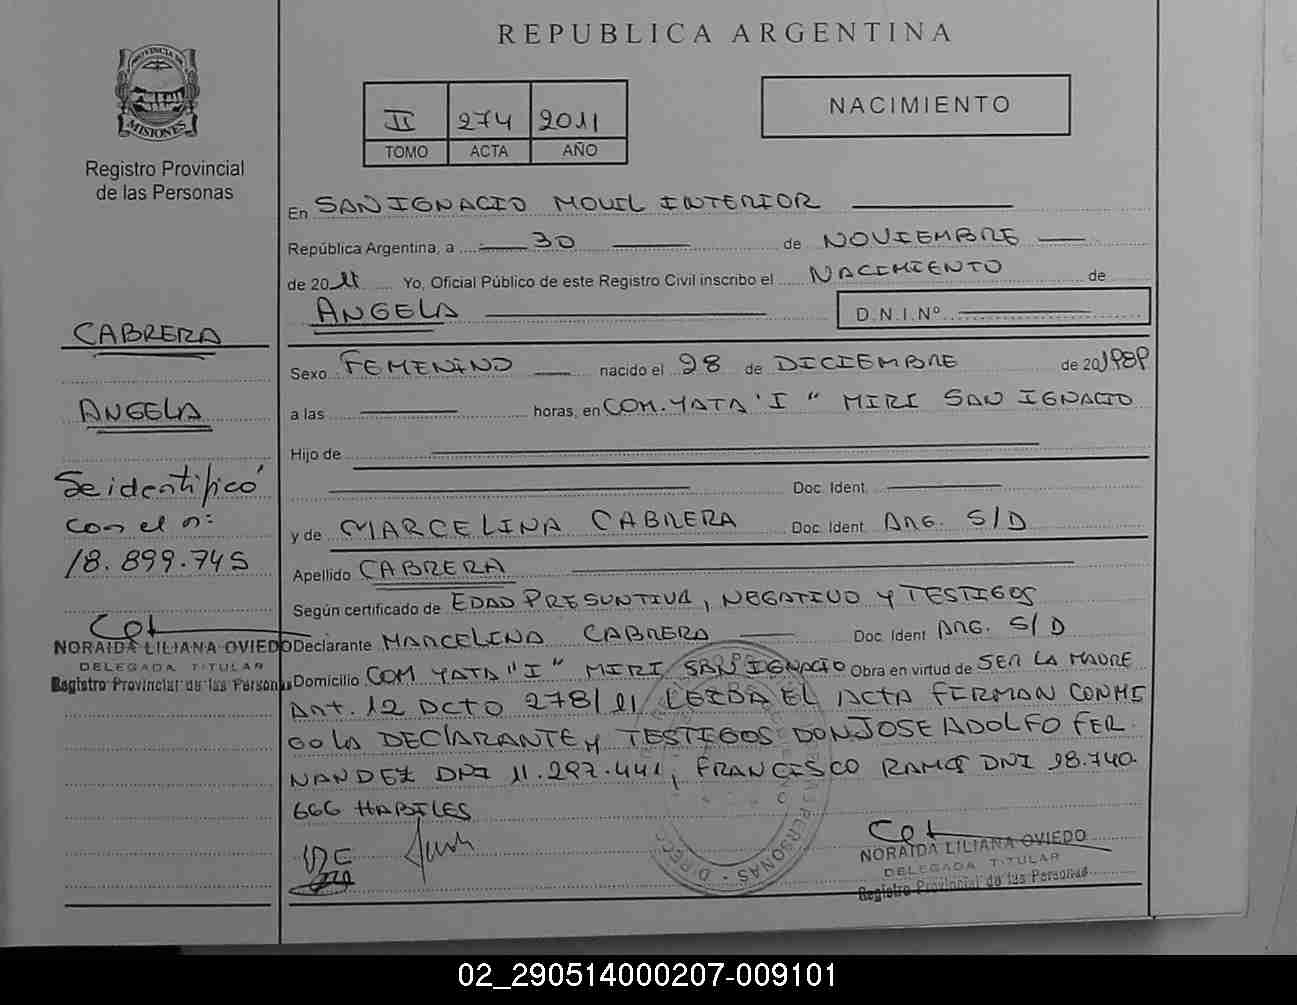 REPUBLICA ARGENTINA
PROVINCIA DE
MISIONES
Registro Provincial
de las Personas
II 274 2011
TOMO ACTA AÑO
NACIMIENTO
En SAN IGNACIO MOVIL INTERIOR
República Argentina, a 30 de NOVIEMBRE
de 2011 Yo, Oficial Público de este Registro Civil inscribo el NACIMIENTO de
ANGELA D.N.I.Nº
CABRERA
ANGELA
Se identificó
con el nº
18.899.745
NORAIDA LILIANA OVIEDO
DELEGADA TITULAR
Registro Provincial de las Personas
Sexo FEMENINO nacido el 28 de DICIEMBRE de 201989
a las horas, en COM. YATA 'I" MIRI SAN IGNACIO
Hijo de
Doc. Ident.
y de MARCELINA CABRERA Doc. Ident. ARG. S/D
Apellido CABRERA
Según certificado de EDAD PRESUNTIVA, NEGATIVO Y TESTIGOS
Declarante MARCELINA CABRERA Doc. Ident ARG. S/D
Domicilio COM YATA "I" MIRI SAN IGNACIO Obra en virtud de SER LA MADRE
Art. 12 DCTO 278/11 LEIDA EL ACTA FIRMAN CONMI
GO LA DECLARANTE Y TESTIGOS DON JOSE ADOLFO FER
NANDEZ DNI 11.297.441, FRANCISCO RAMOS DNI 18.740
666 HABILES
NORAIDA LILIANA OVIEDO
DELEGADA TITULAR
Registro Provincial de las Personas
02_290514000207-009101